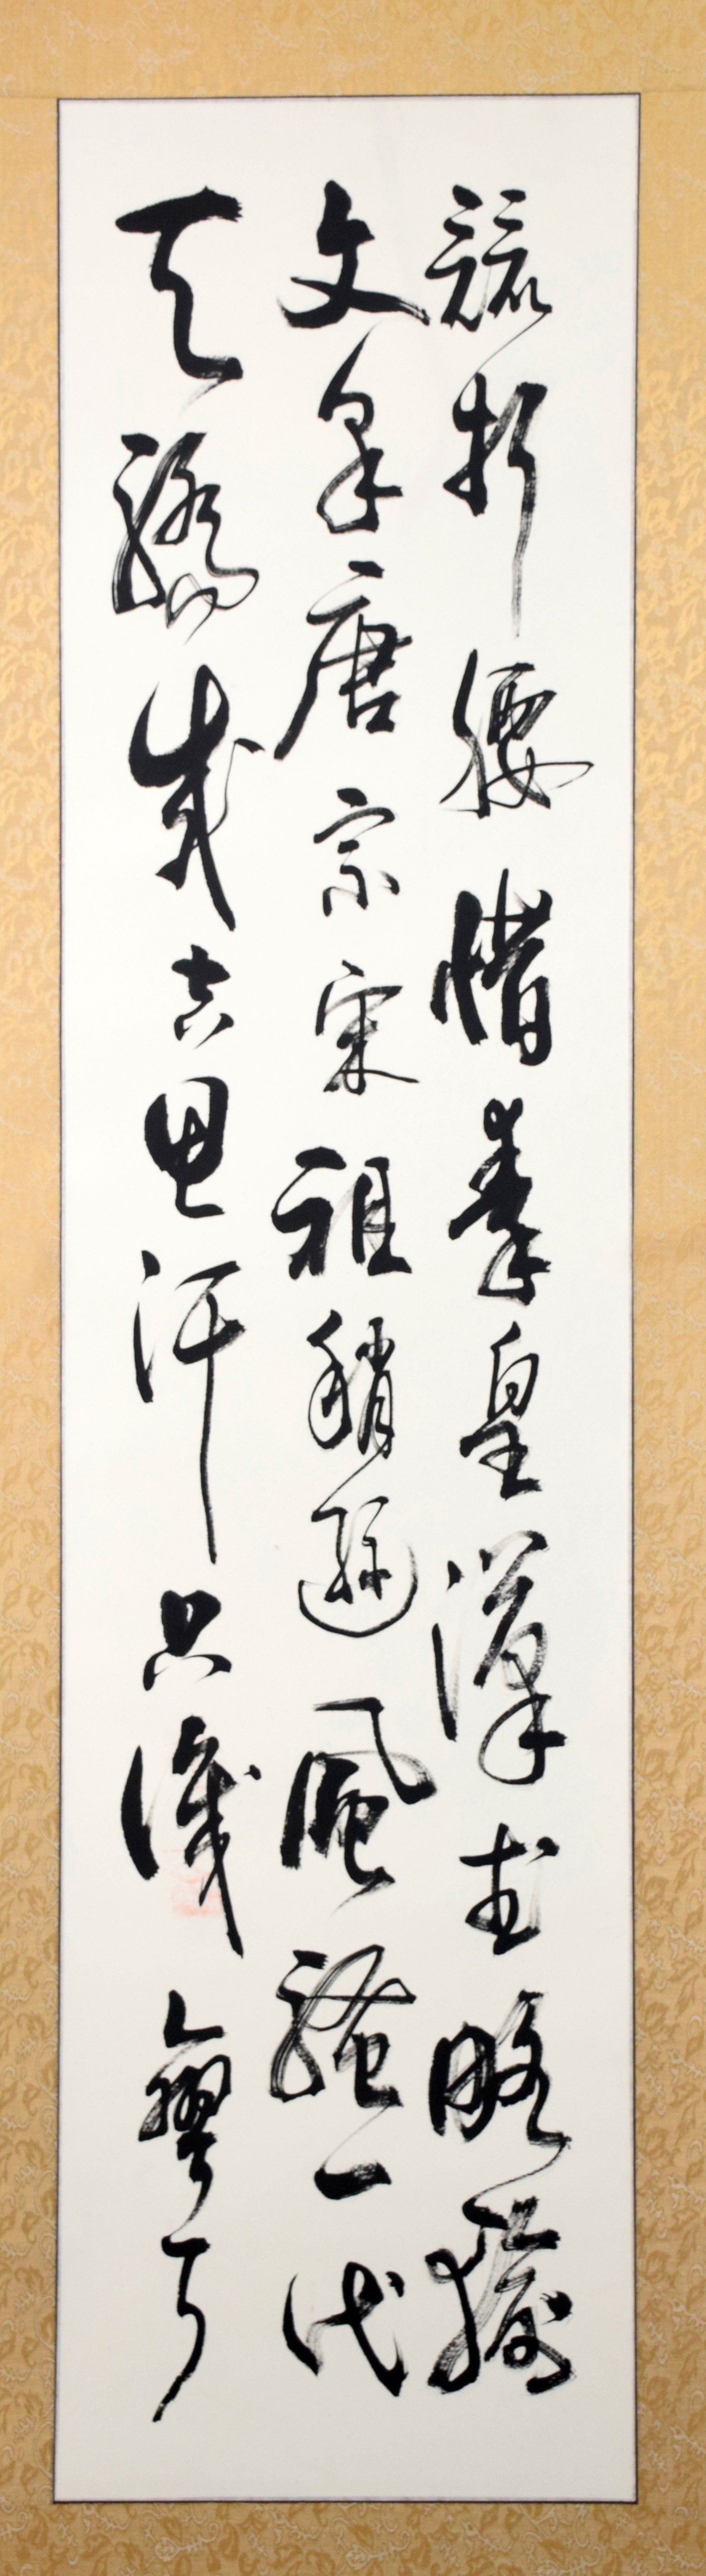 競折腰惜秦皇漢武略輸
文采唐宗宋祖稍遜風騷一代
天驕成吉思汗只識彎弓